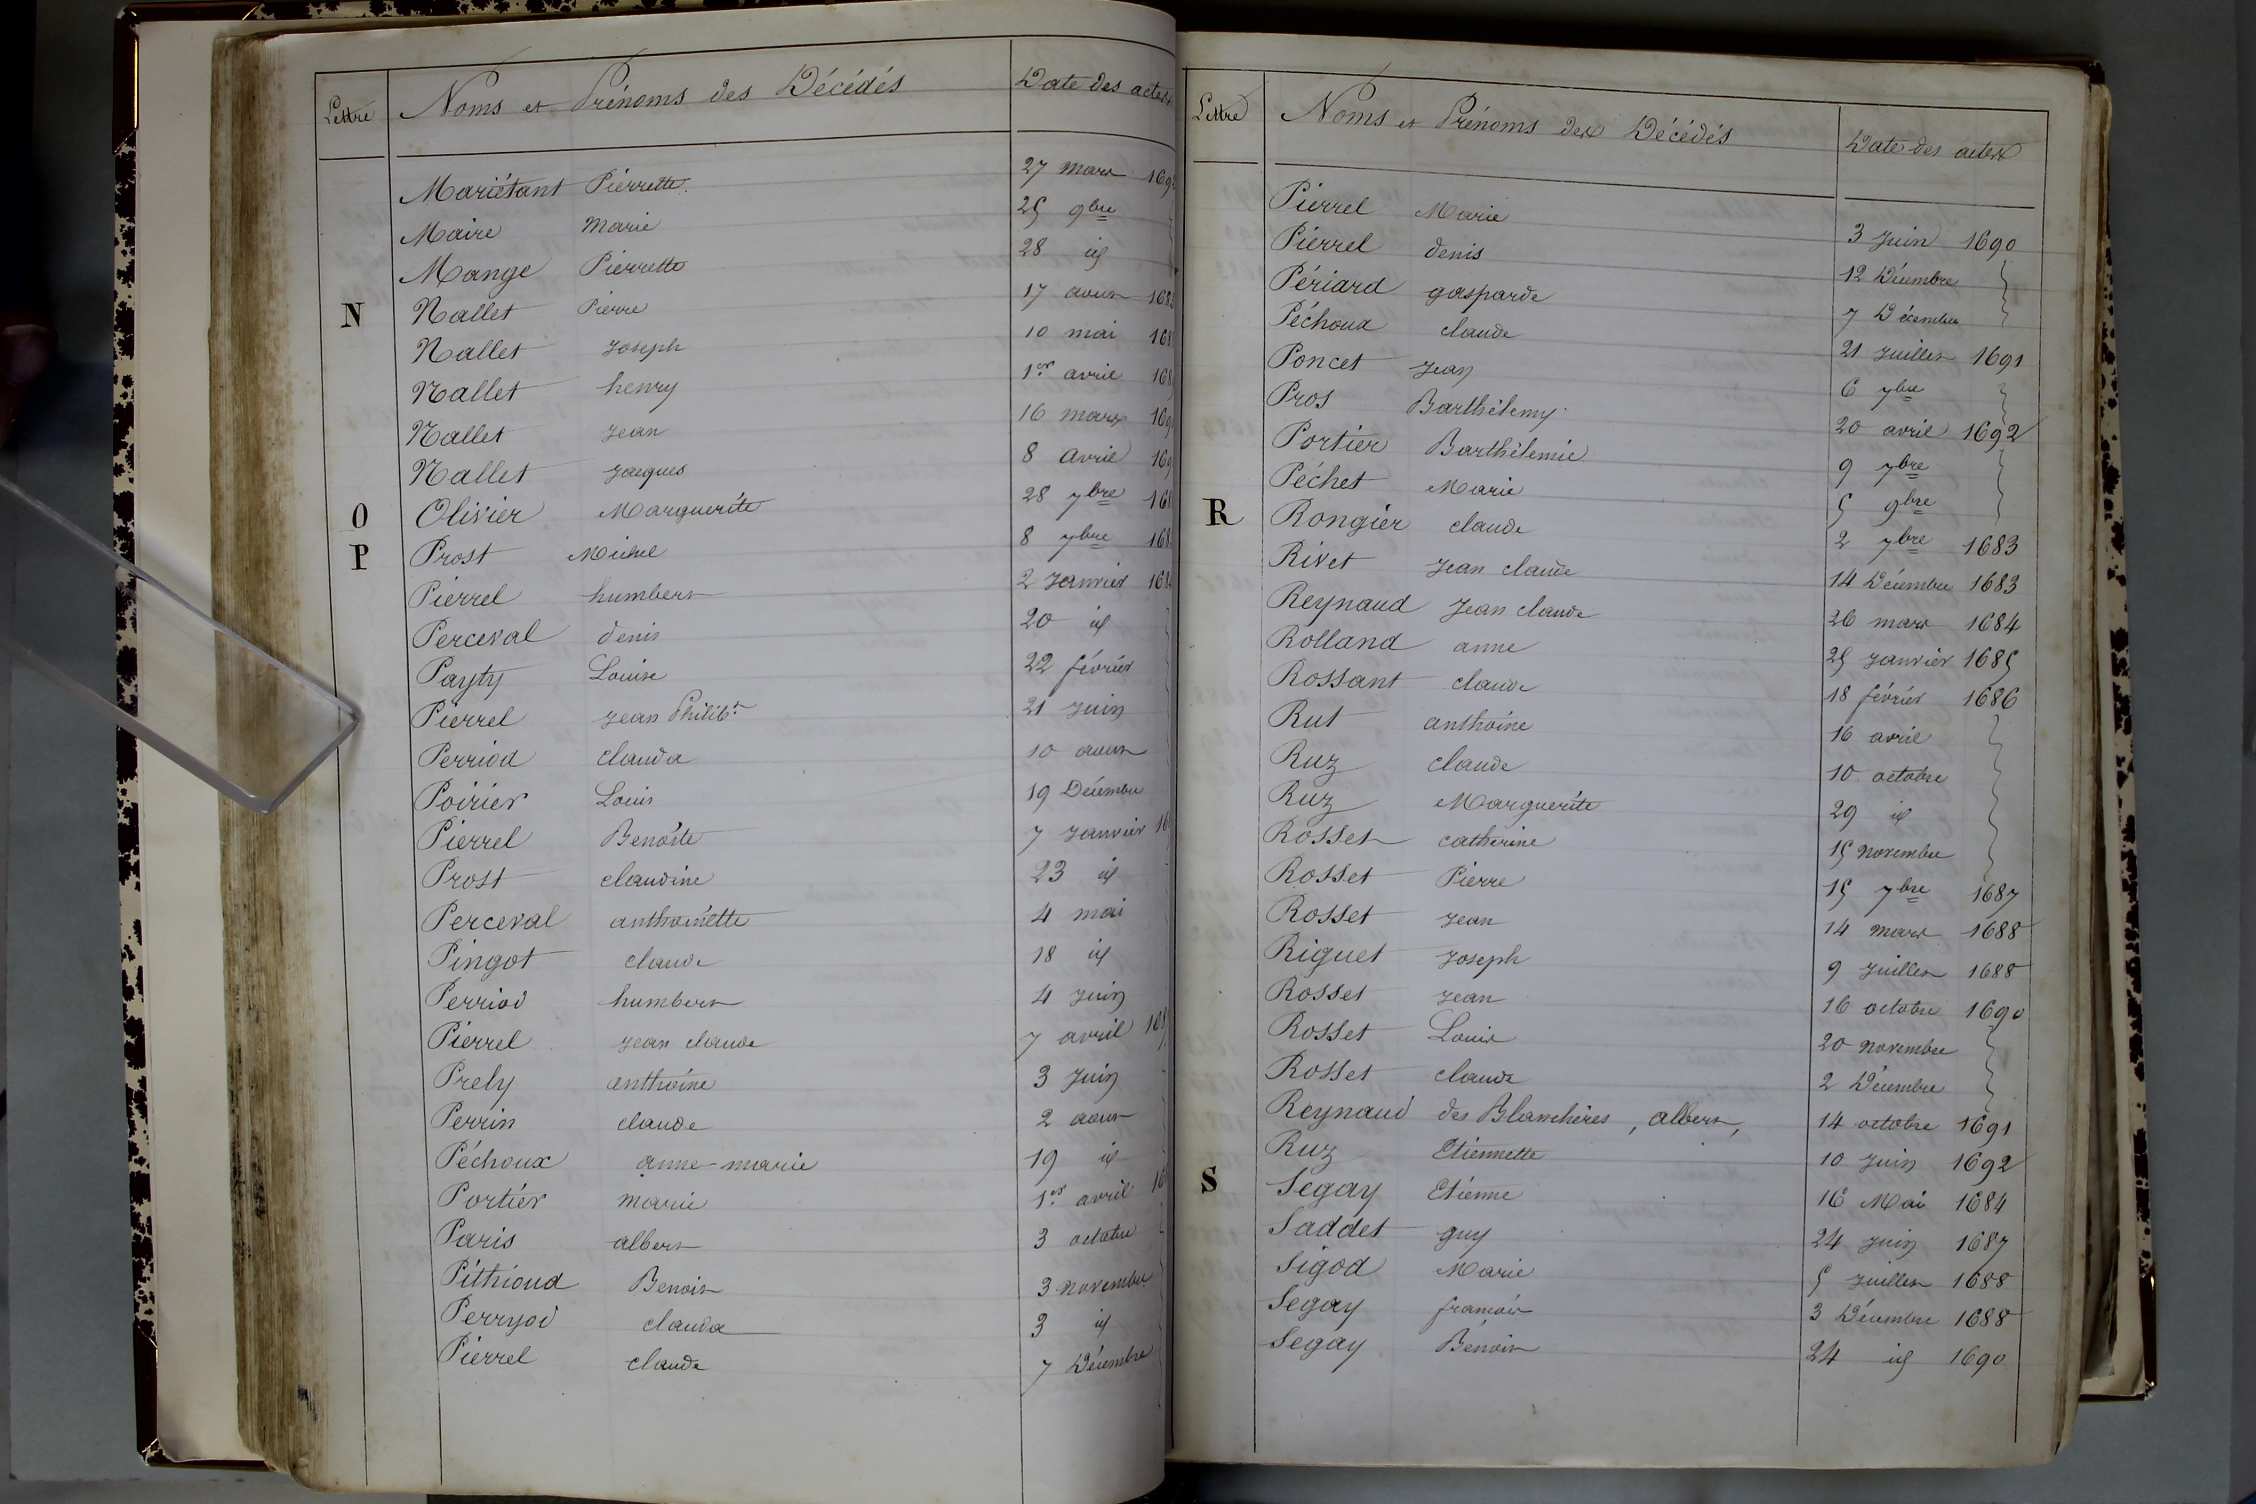 Lettre Noms et Prénoms des Décédés Date des actes
Mariétant Pierrette 27 mars
Maire Marie 25 9bre
Mange Pierrette 28 id
N Nallet Pierre 17 aout
Nallet Joseph 10 mai
Nallet henry 1er avril
Nallet Jean 16 mars
Nallet Jacques 8 Avril
O Olivier Marguerite 28 7bre
P Prost Michel 8 7bre
Pierrel humbert 2 Janvier
Perceval denis 20 id
Payty Louise 22 février
Pierrel Jean Philibt 21 Juin
Perriod clauda 10 aout
Poirier Louis 19 Décembre
Pierrel Benoite 7 Janvier
Prost claudine 23 id
Perceval anthoinette 4 mai
Pingot claude 18 id
Perriod humbert 4 Juin
Pierrel Jean claude 7 avril
Prely anthoine 3 Juin
Perrin claude 2 aout
Péchoux anne-marie 19 id
Portier marie 1er avril
Paris albert 3 octobre
Pithioud Benoit 3 novembre
Perryod clauda 3 id
Pierrel claude 7 Décembre
Lettre Noms et Prénoms des Décédés Date des actes
Pierrel Marie 3 Juin 1690
Pierrel denis 12 Décembre
Périard gasparde 7 Décembre
Péchoux claude 21 Juillet 1691
Poncet Jean 6 7bre
Pros Barthélemy 20 avril 1692
Portier Barthélemie 9 7bre
Péchet Marie 5 9bre
R Rongier claude 2 7bre 1683
Rivet Jean claude 14 Décembre 1683
Reynaud Jean claude 26 mars 1684
Rolland anne 25 Janvier 1685
Rossant claude 18 février 1686
Rut anthoine 16 avril
Ruz claude 10 octobre
Ruz Marguerite 29 id
Rosset catherine 15 novembre
Rosset Pierre 15 7bre 1687
Rosset Jean 14 mars 1688
Riguet Joseph 9 Juillet 1688
Rosset Jean 16 octobre 1690
Rosset Louis 20 novembre
Rosset claude 2 Décembre
Reynaud des Blanchères, albert, 14 octobre 1691
Ruz Etiennette 10 Juin 1692
S Segay Etienne 16 Mai 1684
Saddet guy 24 Juin 1687
Sigod Marie 5 Juillet 1688
Segay francois 3 Décembre 1688
Segay Benoit 24 id 1690